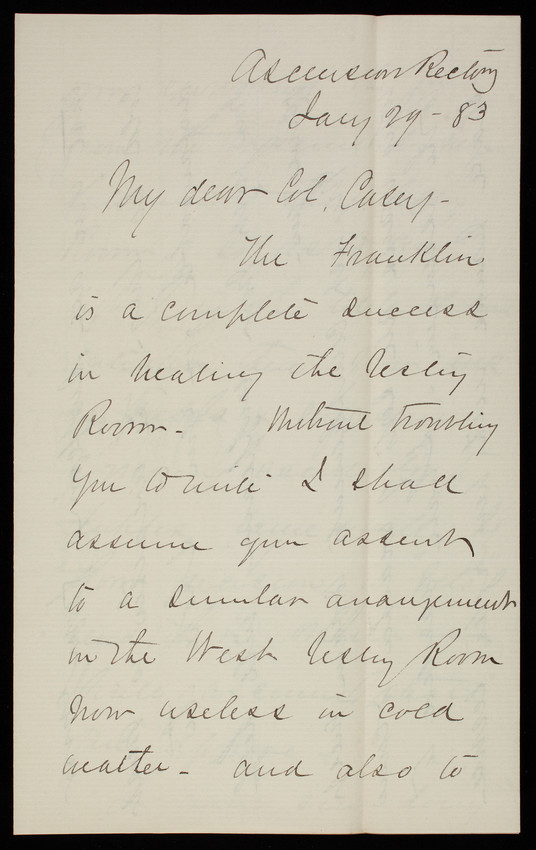 Ascension Rectory
Jany 29 - 83
My dear Col. Casey -
The Franklin
is a complete success
in heating the Vestry
Room - Without troubling
you to write I shall
assume your assent
to a similar arrangement
in the West Vestry Room
now useless in cold
weather - and also to